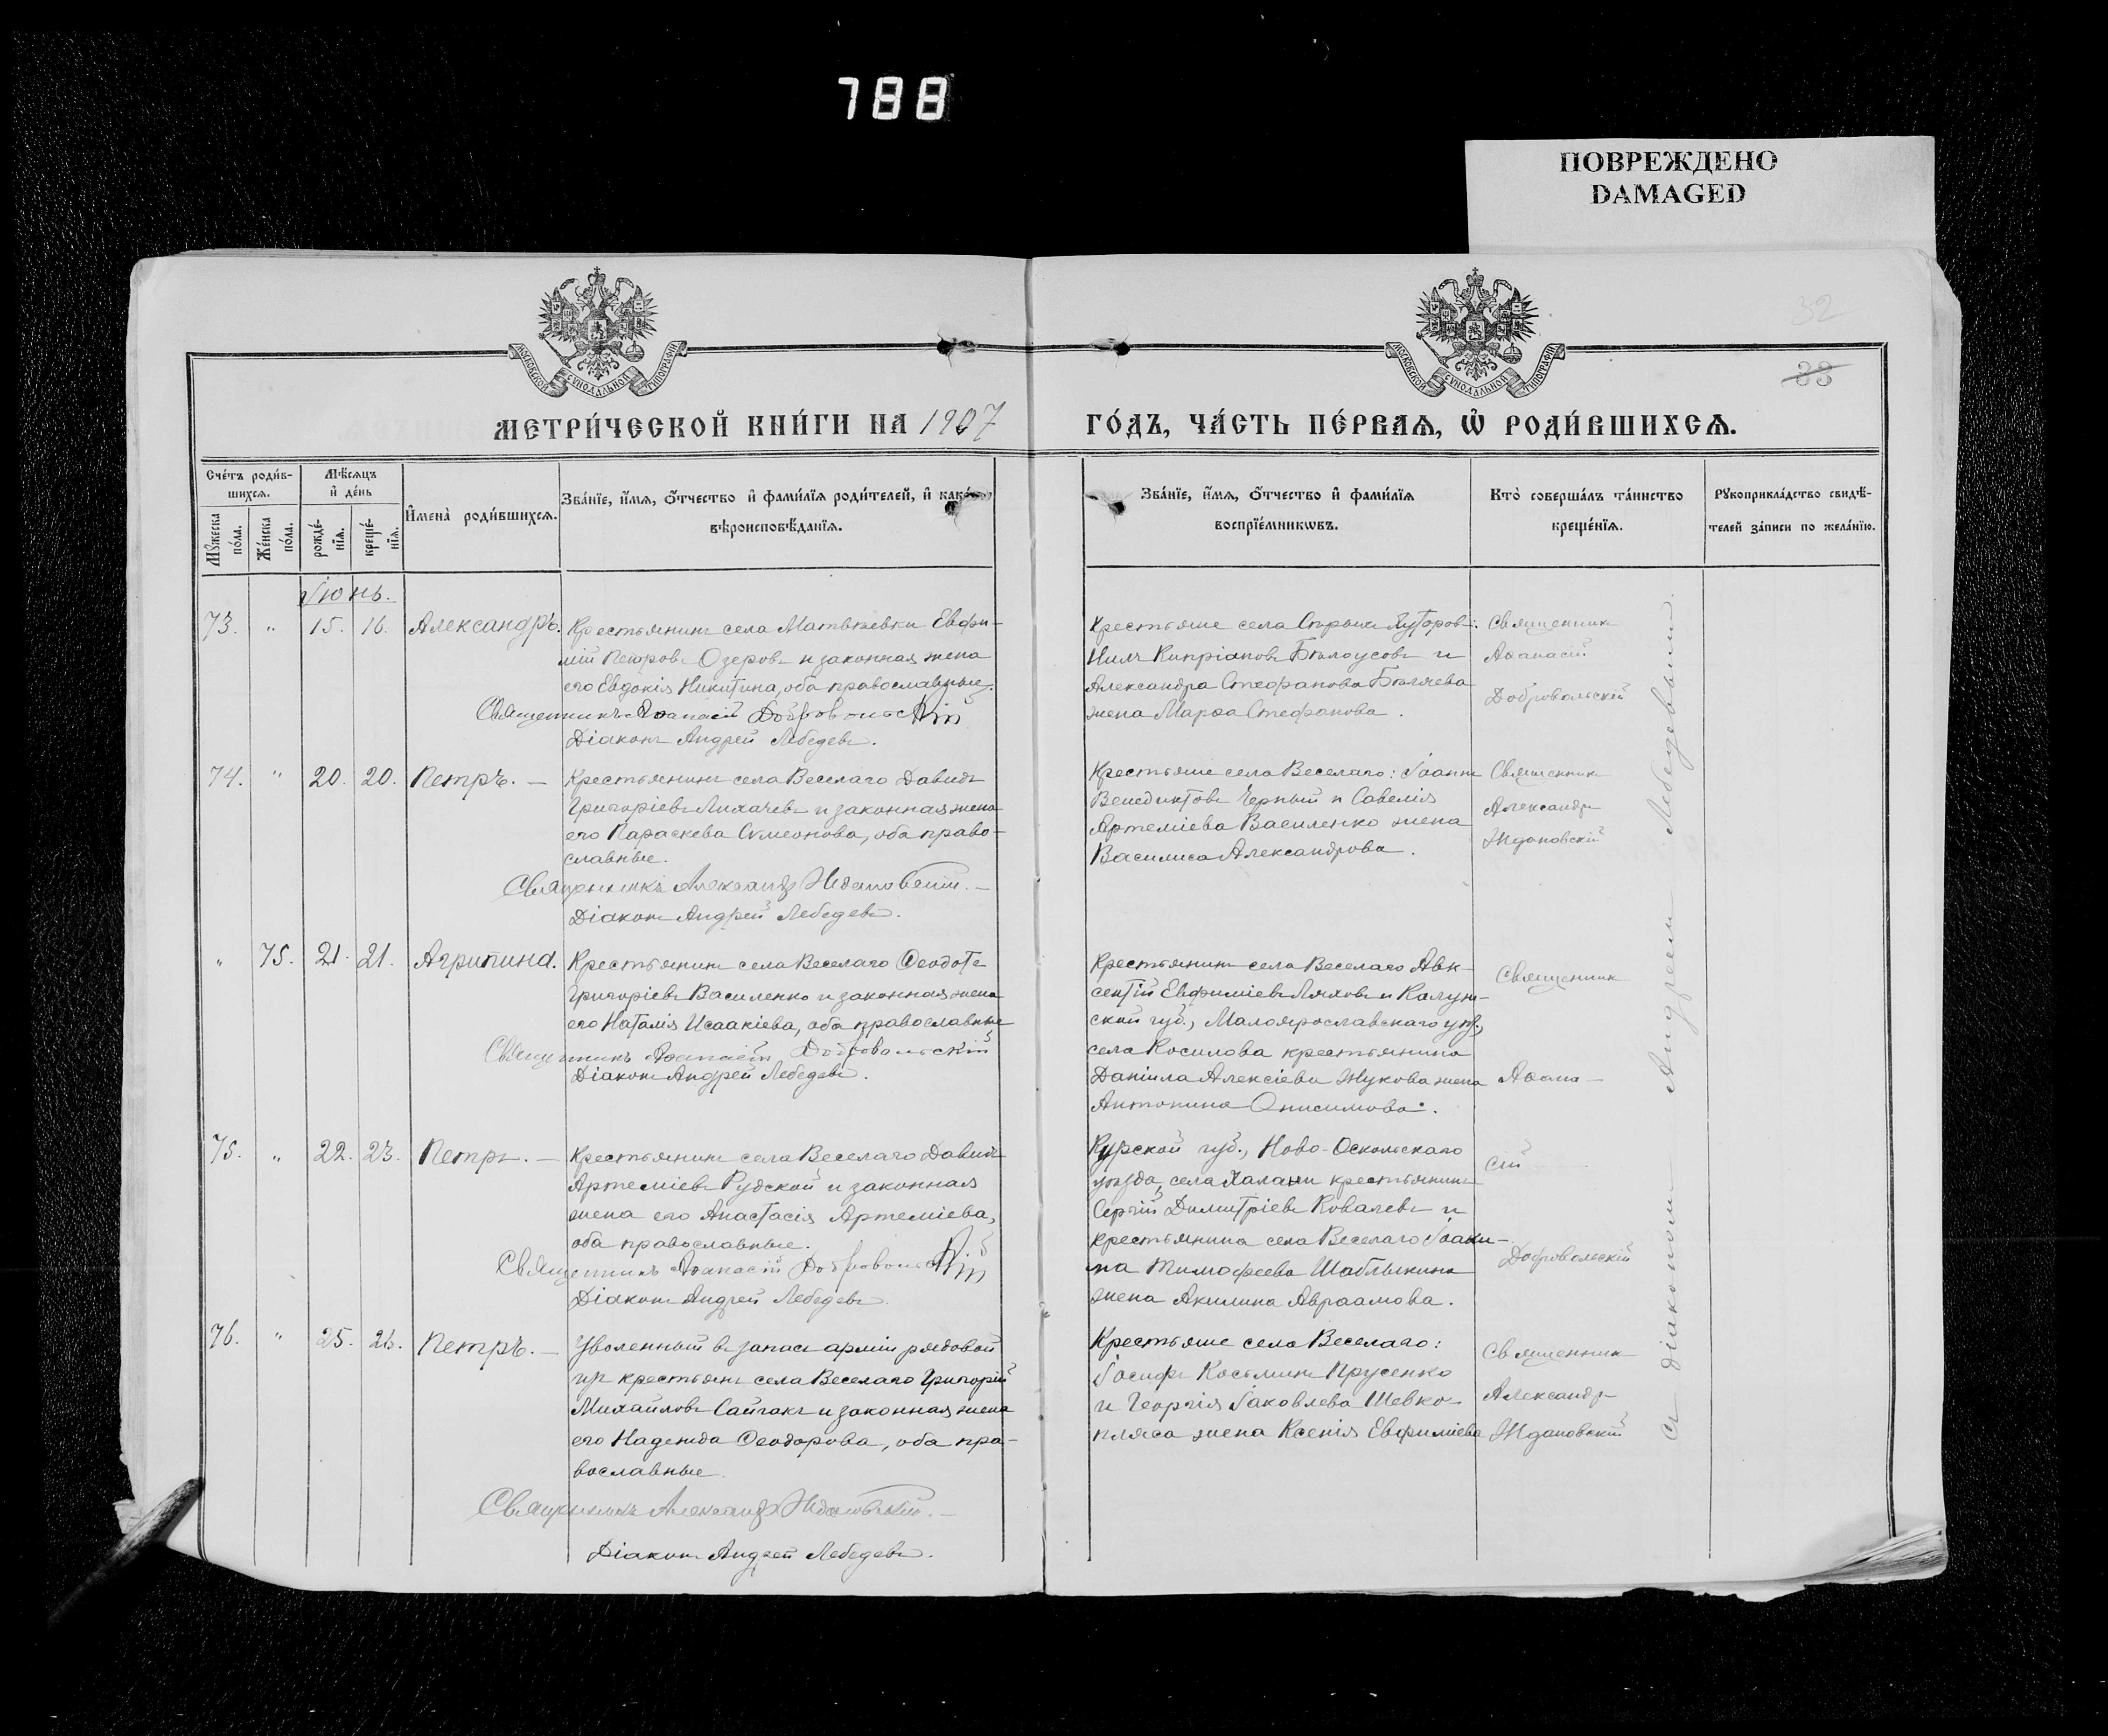 788
ПОВРЕЖДЕНО
DAMAGED
МОСКОВСКОЙ СУНОДАЛЬНОЙ ТИПОГРАФІИ
МОСКОВСКОЙ СУНОДАЛЬНОЙ ТИПОГРАФІИ
32
33
МЕТРИ́ЧЕСКОЙ КНИ́ГИ НА 1907
ГО́ДЪ, ЧА́СТЬ ПЕ́РВАѦ, Ѡ҆ РОДИ́ВШИХСѦ.
Сче́тъ роди́в-
шихсѧ.
Мѣ́сѧцъ
и҆ де́нь
Мꙋ́жеска
по́ла.
Же́нска
по́ла.
рожде́-
нїѧ.
креще́-
нїѧ.
И҆мена̀ роди́вшихсѧ.
Зва́нїе, и҆́мѧ, ѻ҆́тчество и҆ фами́лїѧ роди́телей, и҆ како́гѡ
вѣроисповѣ́данїѧ.
Зва́нїе, и҆́мѧ, ѻ҆́тчество и҆ фами́лїѧ
воспрїе́мникѡвъ.
Кто̀ соверша́лъ та́инство
креще́нїѧ.
Рꙋкоприкла́дство свидѣ́-
телей за́писи по жела́нїю.
Іюнь.
73. " 15. 16. Александръ.
Крестьянинъ села Матвѣевки Евфи-
мій Петровъ Озеровъ и законная жена
его Евдокія Никитина, оба православные.
Священникъ Аѳанасій Добровольскій
Діаконъ Андрей Лебедевъ.
Крестьяне села Хуторовъ:
Нилъ Кипріановъ Бѣлоусовъ и
Александра Стефанова Бѣляева
жена Марѳа Стефанова.
Священникъ
Аѳанасій
Добровольскій
74. " 20. 20. Петръ. —
Крестьянинъ села Веселаго Давидъ
Григоріевъ Лихачевъ и законная жена
его Параскева Симеонова, оба право-
славные.
Священникъ Александръ Ждановскій. —
Діаконъ Андрей Лебедевъ.
Крестьяне села Веселаго: Іоаннъ
Венедиктовъ Черный и Савелія
Артеміева Василенко жена
Василиса Александрова.
Священникъ
Александръ
Ждановскій
" 75. 21. 21. Агрипина.
Крестьянинъ села Веселаго Ѳеодотъ
Григоріевъ Василенко и законная жена
его Наталія Исаакіева, оба православные
Священникъ Аѳанасій Добровольскій
Діаконъ Андрей Лебедевъ.
Крестьянинъ села Веселаго Авк-
сентій Евфиміевъ Ляховъ и Калуж-
ской губ., Малоярославскаго уѣз.,
села Косилова крестьянина
Даніила Алексіева Жукова жена
Антонина Онисимова.
Священникъ
Аѳана-
75. " 22. 23. Петръ. —
Крестьянинъ села Веселаго Давидъ
Артеміевъ Рудской и законная
жена его Анастасія Артеміева,
оба православные.
Священникъ Аѳанасій Добровольскій
Діаконъ Андрей Лебедевъ.
Курской губ., Ново-Оскольскаго
уѣзда, села Халани крестьянинъ
Сергій Димитріевъ Ковалевъ и
крестьянина села Веселаго Іоаки-
ма Тимофеева Шаблыкина
жена Акилина Авраамова.
сій
Добровольскій
76. " 25. 26. Петръ. —
Уволенный въ запасъ арміи рядовой
изъ крестьянъ села Веселаго Григорій
Михайловъ Сайгакъ и законная жена
его Надежда Ѳеодорова, оба пра-
вославные.
Священникъ Александръ Ждановскій. —
Діаконъ Андрей Лебедевъ.
Крестьяне села Веселаго:
Іосифъ Косьминъ Прусенко
и Георгія Іаковлева Шевко-
пляса жена Ксенія Евфиміева
Священникъ
Александръ
Ждановскій
Съ діакономъ Андреемъ Лебедевымъ.